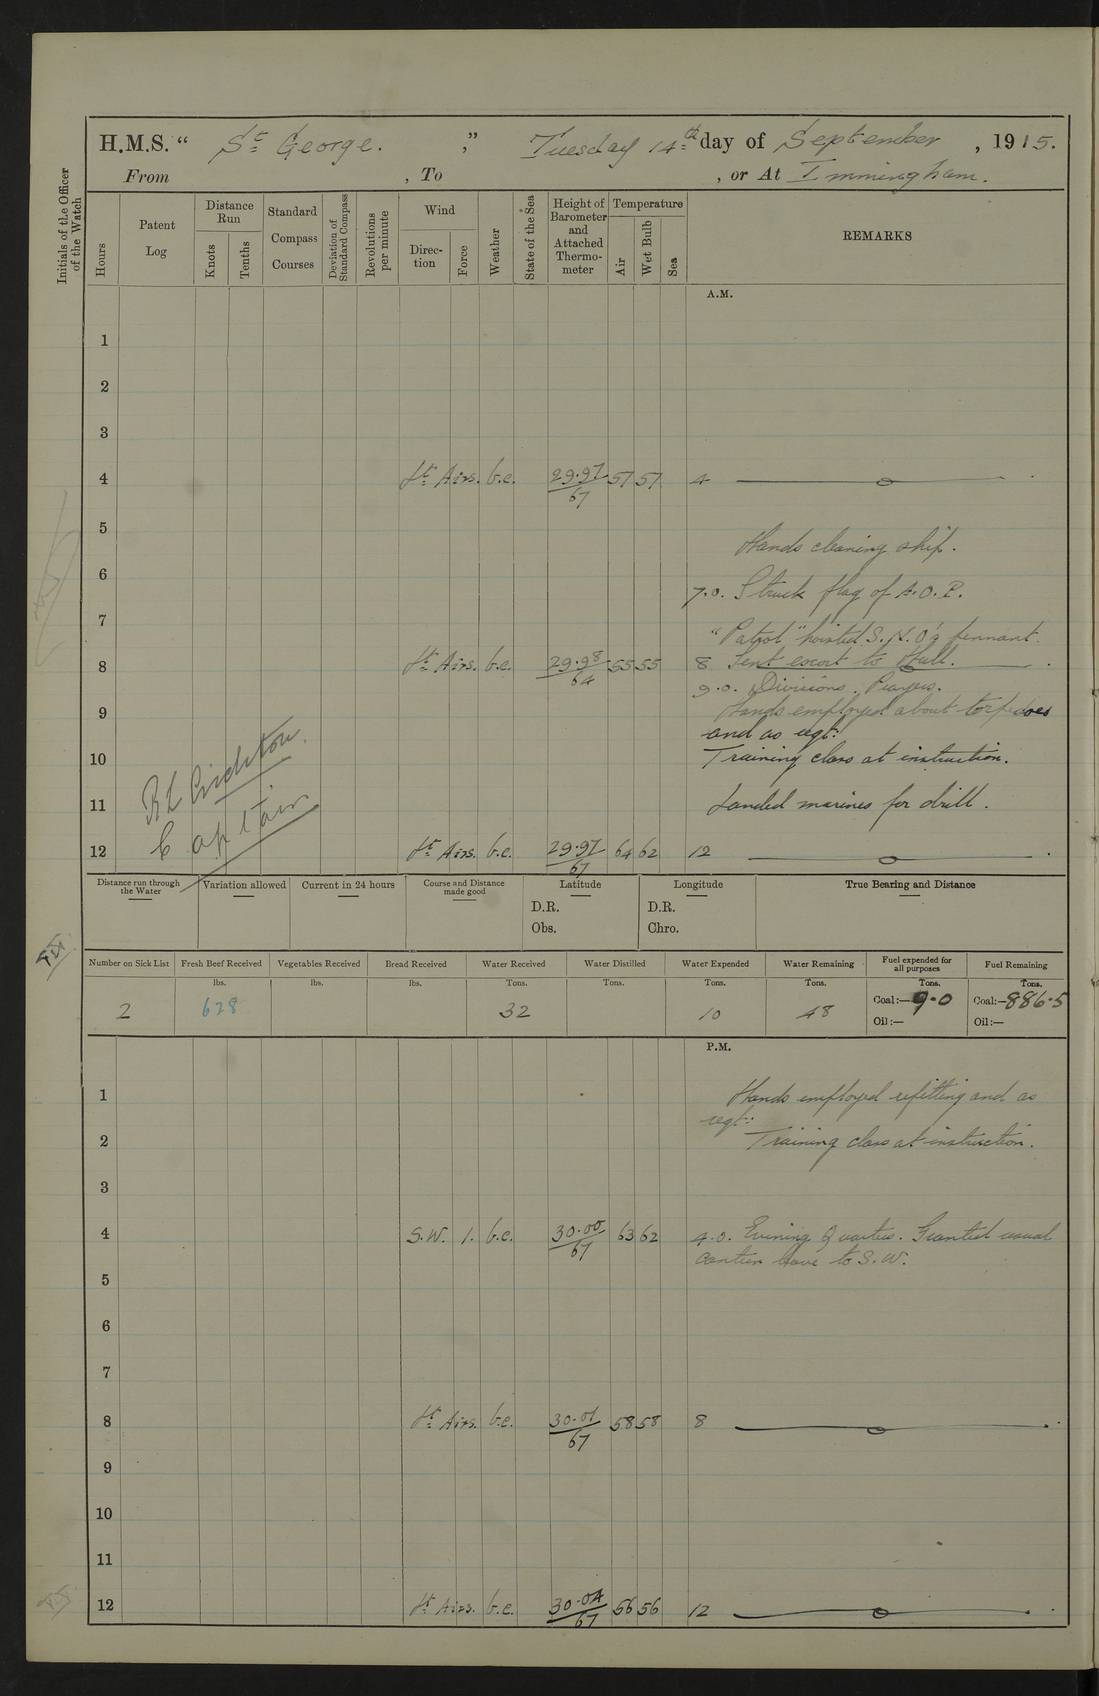 H.M.S. " St George. ", Tuesday 14th day of September, 1915.
From , To , or At Immingham.
Initials of the Officer of the Watch
Hours
Patent Log
Distance Run
Knots
Tenths
Standard Compass Courses
Deviation of Standard Compass
Revolutions per minute
Wind
Direction
Force
Weather
State of the Sea
Height of Barometer and Attached Thermometer
Temperature
Air
Wet Bulb
Sea
REMARKS
A.M.
1
2
3
4 Lt Airs. b.c. 29.97/67 57 57 4
5
Hands cleaning ship.
6
7.0. Struck flag of A.O.P.
7
"Patrol" hoisted S.N.O's pennant.
8 Lt Airs. b.c. 29.98/64 55 55 8 Sent escort to Hull.
9.0. Divisions. Prayers.
9 Hands employed about torpedoes
and as reqt:
10 Training class at instruction.
11 Landed marines for drill.
12 Lt Airs. b.c. 29.97/67 64 62 12
Captain
Distance run through the Water
Variation allowed
Current in 24 hours
Course and Distance made good
Latitude
D.R.
Obs.
Longitude
D.R.
Chro.
True Bearing and Distance
Number on Sick List
2
Fresh Beef Received
lbs.
628
Vegetables Received
lbs.
Bread Received
lbs.
Water Received
Tons.
32
Water Distilled
Tons.
Water Expended
Tons.
10
Water Remaining
Tons.
48
Fuel expended for all purposes
Tons.
Coal:— 9.0
Oil:—
Fuel Remaining
Tons.
Coal:— 886.5
Oil:—
P.M.
1 Hands employed refitting and as
reqt:
2 Training class at instruction.
3
4 S.W. 1. b.c. 30.00/67 63 62 4.0. Evening Quarters. Granted usual
canteen leave to S.W.
5
6
7
8 Lt Airs. b.c. 30.01/67 58 58 8
9
10
11
12 Lt Airs. b.c. 30.04/67 56 56 12